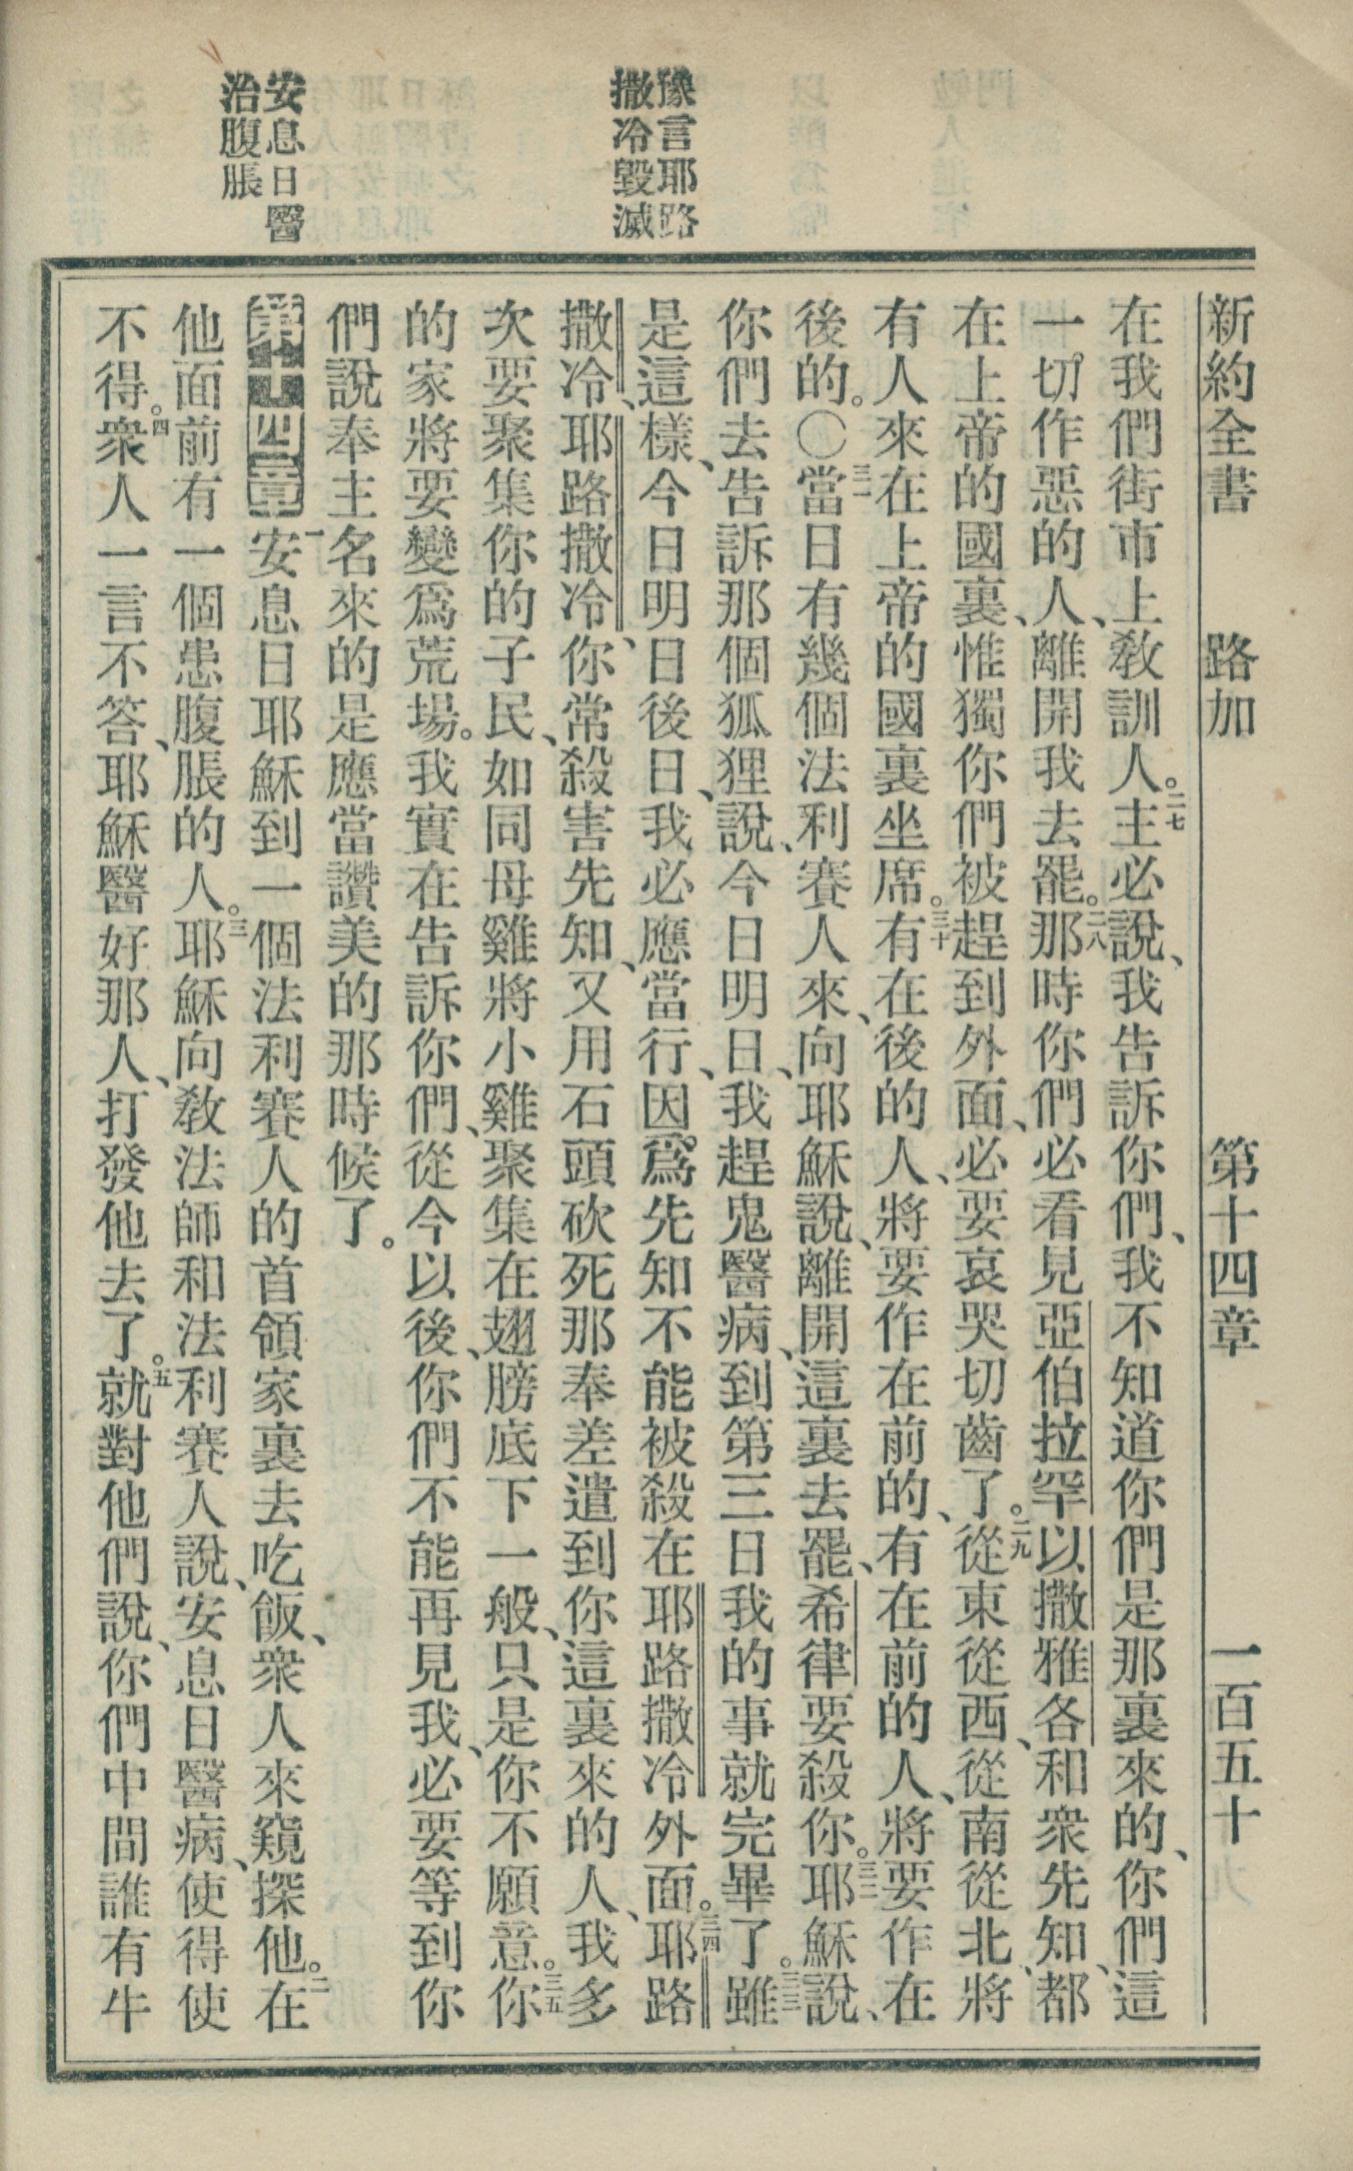 新約全書 路加 第十四章 一百五十
豫言耶路
撒冷毀滅
安息日醫
治腹脹
在我們街市上敎訓人。二七主必說、我告訴你們、我不知道你們是那裏來的、你們這
一切作惡的人、離開我去罷。二八那時你們必看見亞伯拉罕以撒雅各和衆先知、都
在上帝的國裏、惟獨你們被趕到外面、必要哀哭切齒了。二九從東從西、從南從北、將
有人來在上帝的國裏坐席。三十有在後的人、將要作在前的、有在前的人、將要作在
後的。〇三一當日有幾個法利賽人來、向耶穌說、離開這裏去罷、希律要殺你。三二耶穌說、
你們去告訴那個狐狸說、今日明日、我趕鬼醫病、到第三日我的事就完畢了。三三雖
是這樣、今日明日後日、我必應當行、因爲先知不能被殺在耶路撒冷外面。三四耶路
撒冷、耶路撒冷、你常殺害先知、又用石頭砍死那奉差遣到你這裏來的人、我多
次要聚集你的子民、如同母雞將小雞聚集在翅膀底下一般、只是你不願意。三五你
的家將要變爲荒場。我實在告訴你們、從今以後、你們不能再見我、必要等到你
們說奉主名來的是應當讚美的那時候了。
第十四章 一安息日耶穌到一個法利賽人的首領家裏去吃飯、衆人來窺探他。二在
他面前有一個患腹脹的人。三耶穌向敎法師和法利賽人說、安息日醫病、使得使
不得。四衆人一言不答、耶穌醫好那人、打發他去了。五就對他們說、你們中間誰有牛